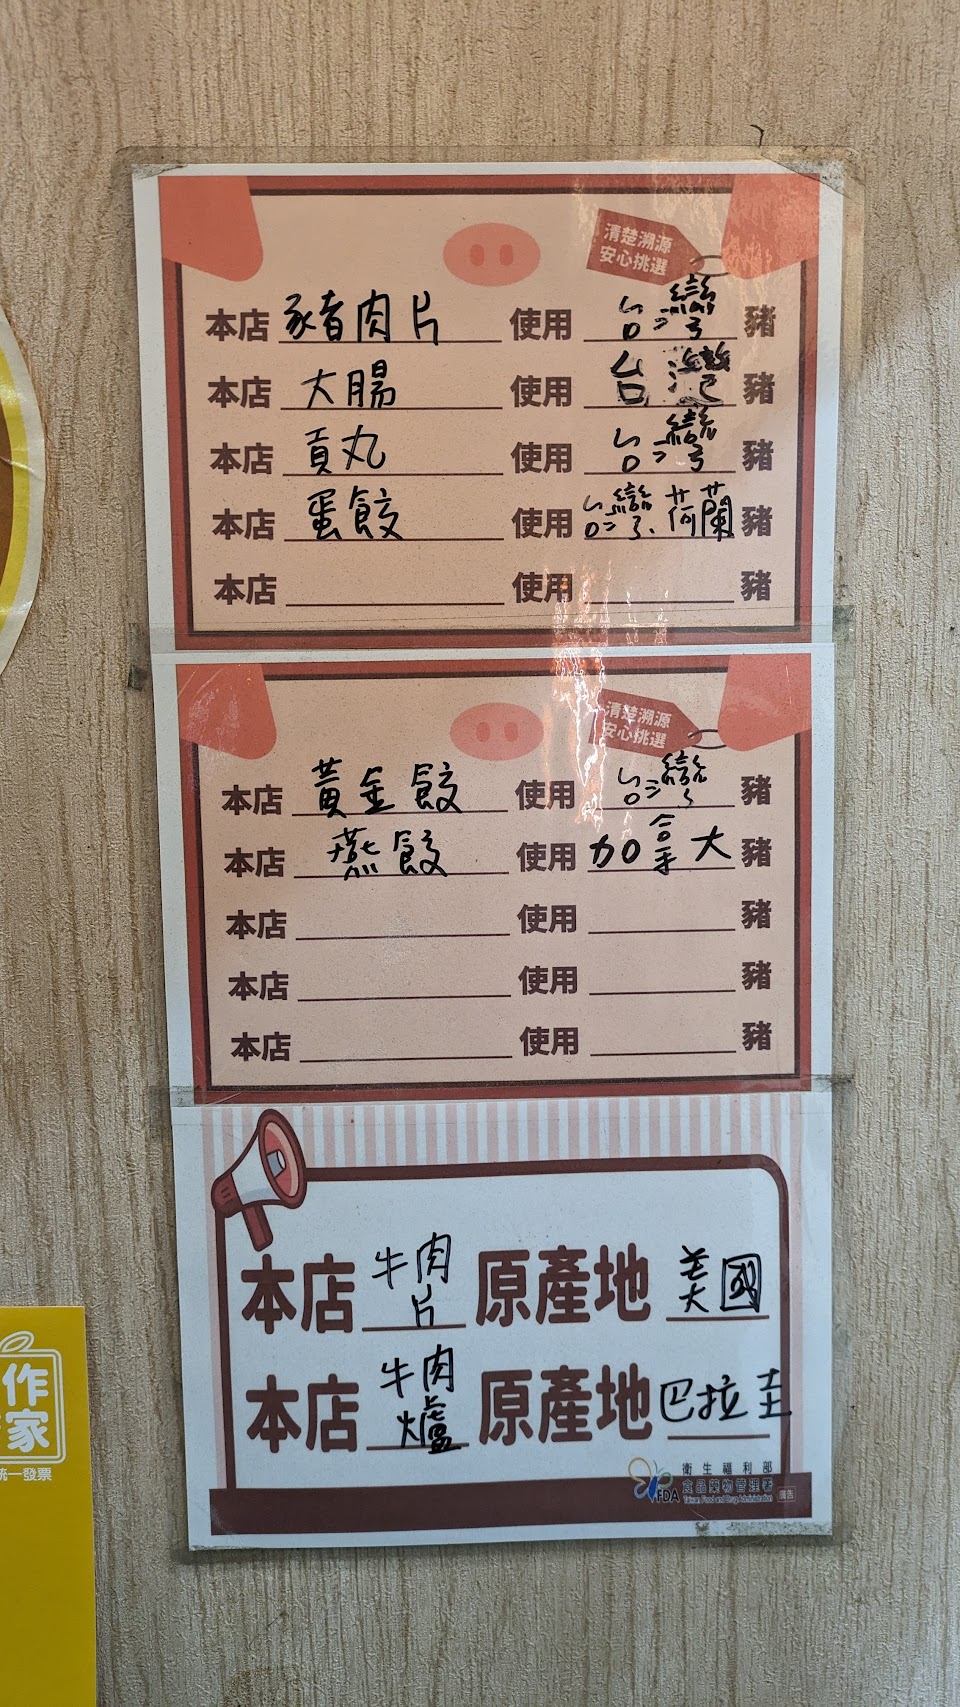 清楚溯源
安心挑選
本店 豬肉片 使用 台灣 豬
本店 大腸 使用 台灣 豬
本店 貢丸 使用 台灣 豬
本店 蛋餃 使用 台灣、荷蘭 豬
本店 使用 豬
清楚溯源
安心挑選
本店 黃金餃 使用 台灣 豬
本店 燕餃 使用 加拿大 豬
本店 使用 豬
本店 使用 豬
本店 使用 豬
本店 牛肉片 原產地 美國
本店 牛肉爐 原產地 巴拉圭
衛生福利部
FDA 食品藥物管理署
Taiwan Food and Drug Administration 廣告
作
家
統一發票